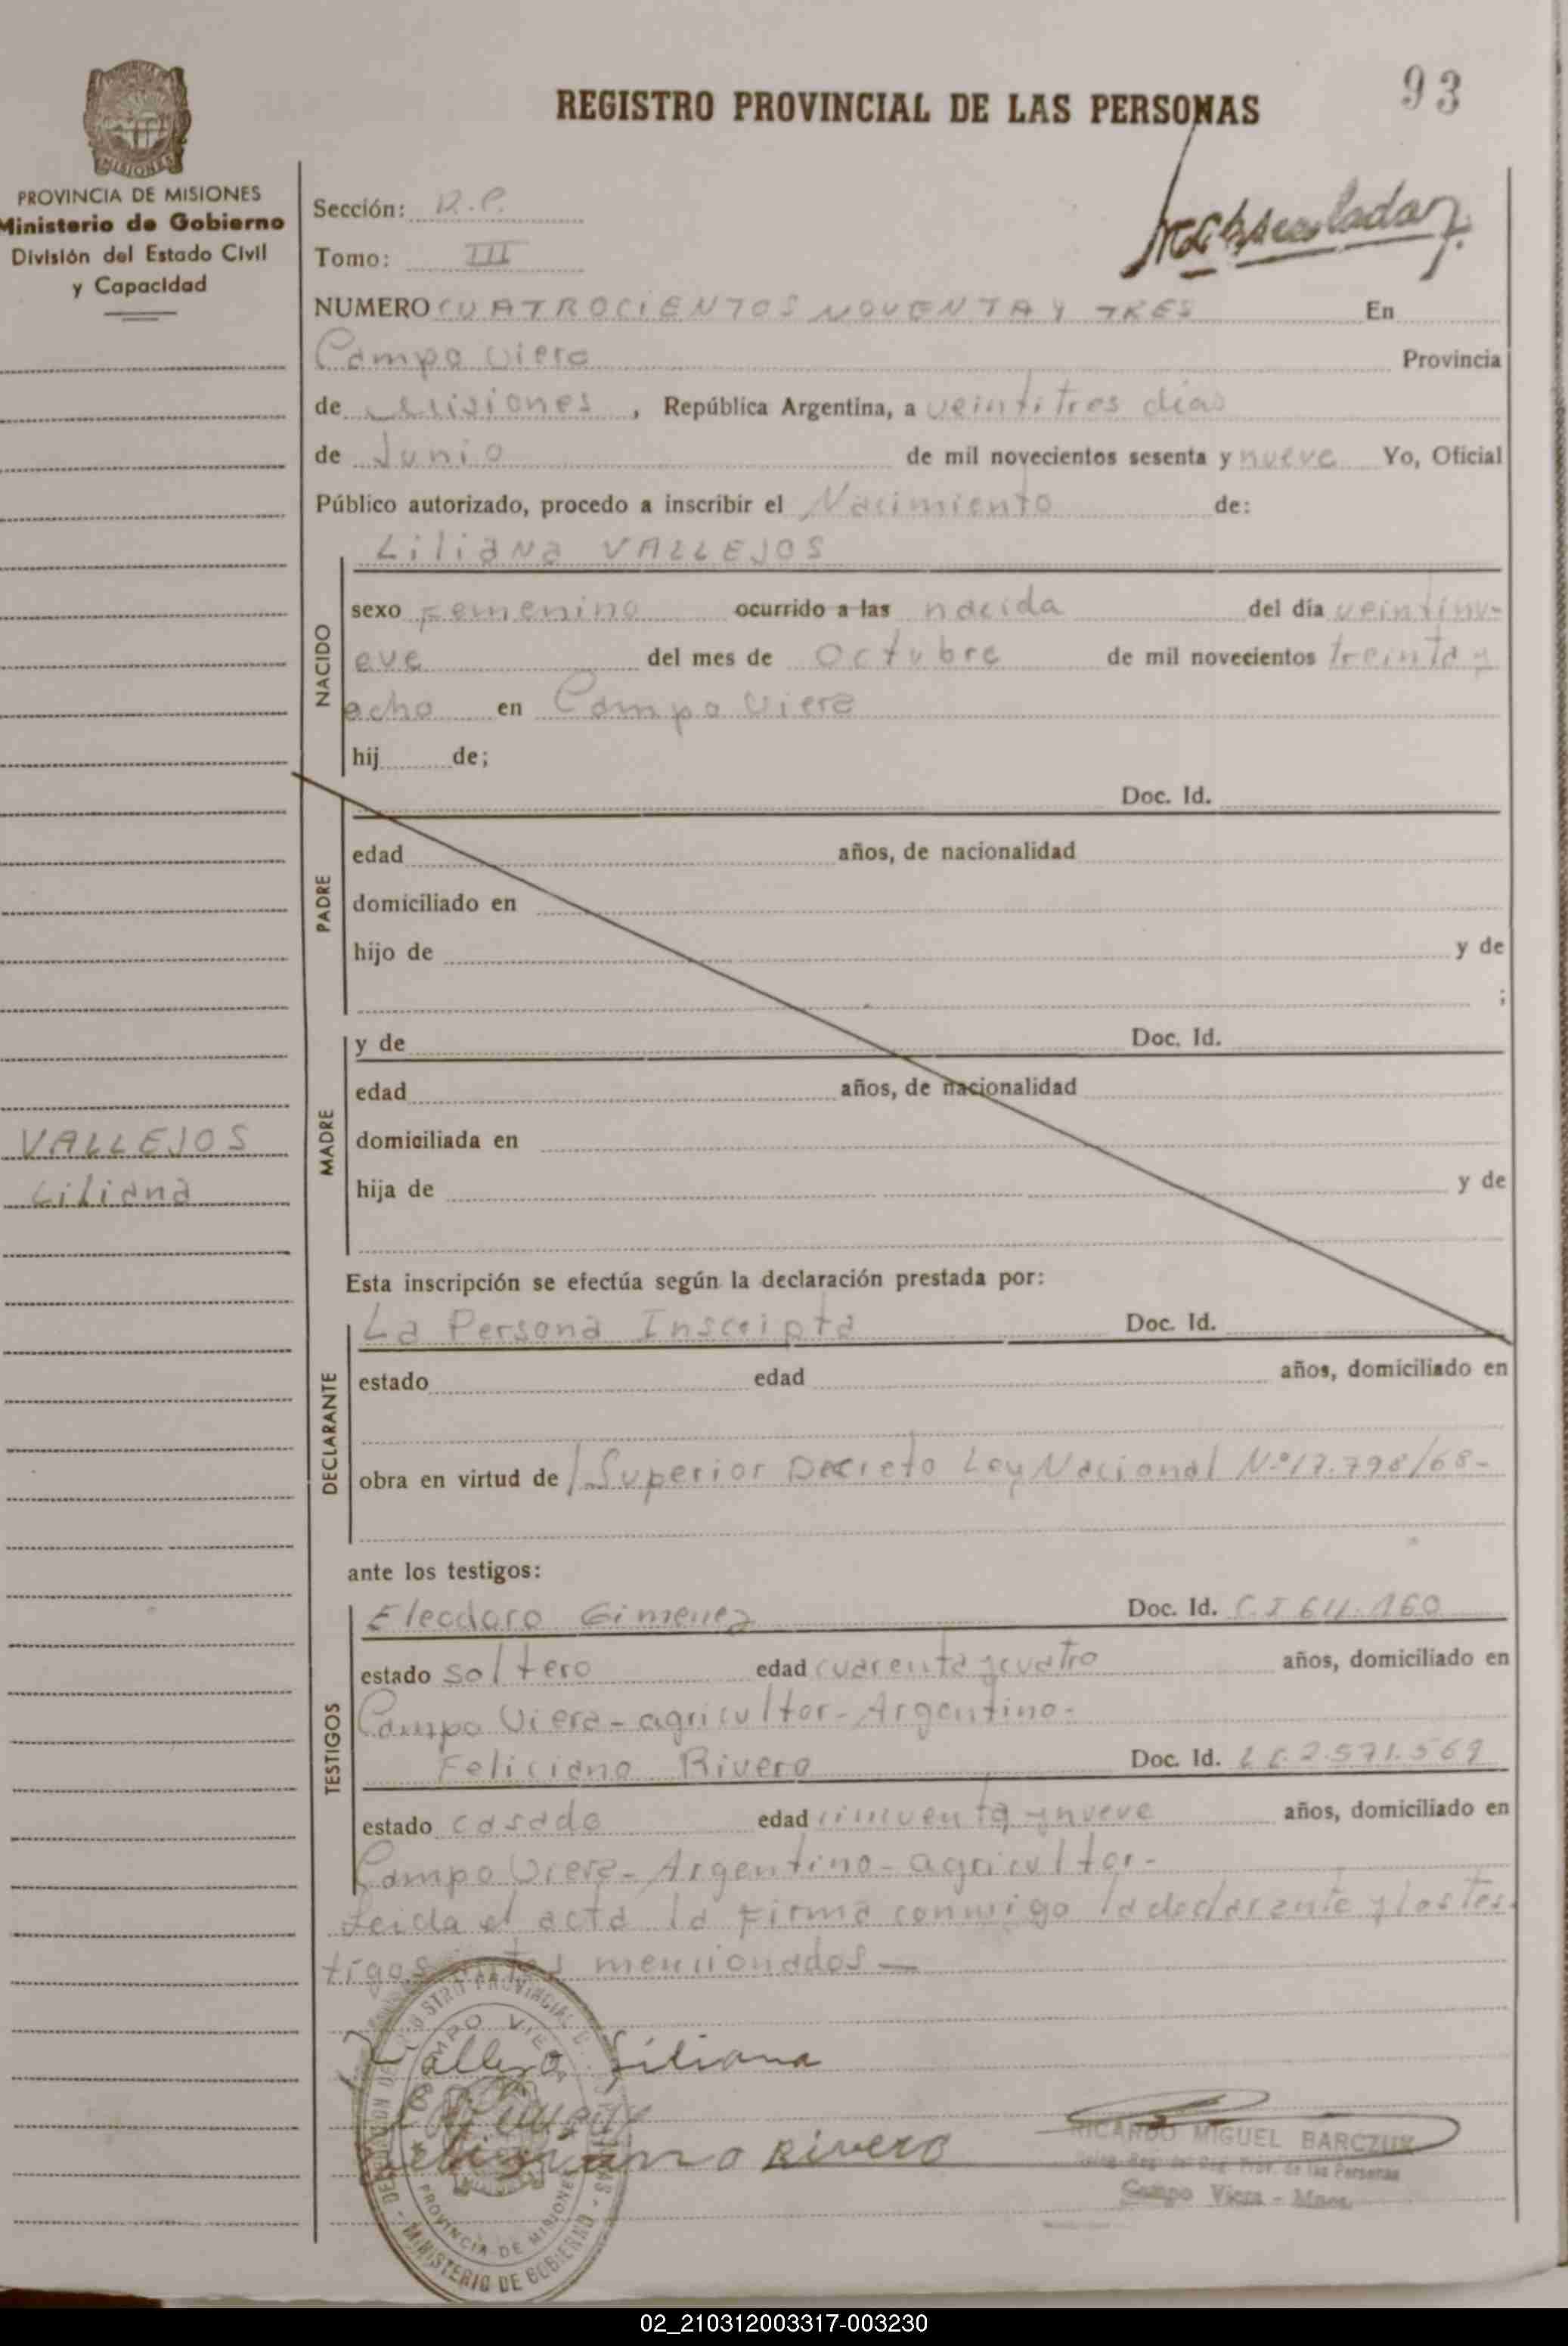 93
REGISTRO PROVINCIAL DE LAS PERSONAS
MISIONES
PROVINCIA DE MISIONES
Ministerio de Gobierno
División del Estado Civil
y Capacidad
Sección: R.P.
Tomo: III
NUMERO CUATROCIENTOS NOVENTA Y TRES En
Campo Viera Provincia
de Misiones, República Argentina, a veintitres dias
de Junio de mil novecientos sesenta y nueve Yo, Oficial
Público autorizado, procedo a inscribir el Nacimiento de:
Liliana VALLEJOS
NACIDO
sexo Femenino ocurrido a las nacida del día veintinu-
eve del mes de Octubre de mil novecientos treinta y
ocho en Campo Viera
hij de;
PADRE
Doc. Id.
edad años, de nacionalidad
domiciliado en
hijo de y de
;
MADRE
y de Doc. Id.
edad años, de nacionalidad
domiciliada en
hija de y de
VALLEJOS
Liliana
Esta inscripción se efectúa según la declaración prestada por:
DECLARANTE
La Persona Inscripta Doc. Id.
estado edad años, domiciliado en
obra en virtud de / Superior Decreto Ley Nacional N.º 17.798/68-
ante los testigos:
TESTIGOS
Eleodoro Gimenez Doc. Id. C.I 611.160
estado soltero edad cuarenta y cuatro años, domiciliado en
Campo Viera - agricultor - Argentino -
Feliciano Rivero Doc. Id. L.E. 2.571.569
estado casado edad cincuenta y nueve años, domiciliado en
Campo Viera - Argentino - agricultor -
Leida el acta la Firma conmigo la declarante y los tes-
tigos antes mencionados —
Vallejo Liliana
Feliciano Rivero
RICARDO MIGUEL BARCZUK
Prov. de las Personas
Campo Viera - Mnes.
CAMPO VIERA
PROVINCIA DE MISIONES
MINISTERIO DE GOBIERNO
02_210312003317-003230